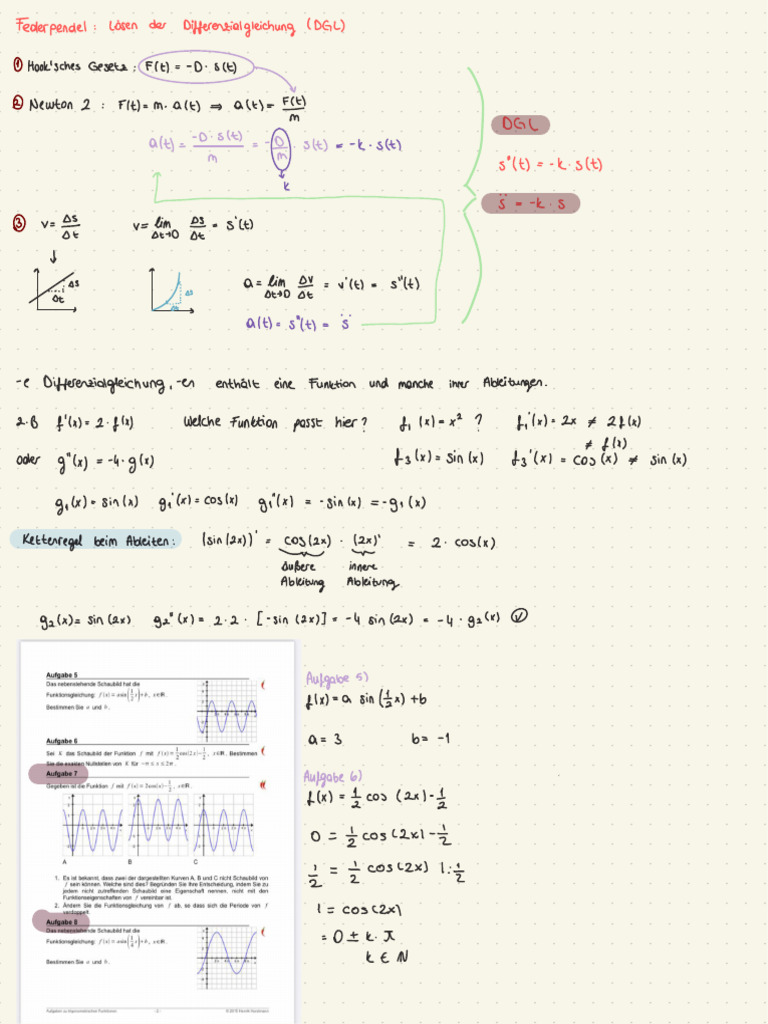 Federpendel: Lösen der Differenzialgleichung (DGL)
① Hook'sches Gesetz: F(t) = -D · s(t)
② Newton 2: F(t) = m · a(t) ⇒ a(t) = F(t)/m
a(t) = -D · s(t)/m = -D/m · s(t) = -k · s(t)
k
DGL
s''(t) = -k · s(t)
s̈ = -k · s
③ v = Δs/Δt v = lim Δt→0 Δs/Δt = s'(t)
Δs
Δt
Δs
a = lim Δt→0 Δv/Δt = v'(t) = s''(t)
a(t) = s''(t) = s̈
-e Differenzialgleichung, -en enthält eine Funktion und manche ihrer Ableitungen.
z.B f'(x) = 2 · f(x) Welche Funktion passt hier? f₁(x) = x² ? f₁'(x) = 2x ≠ 2f(x)
≠ f(x)
oder g''(x) = -4 · g(x) f₃(x) = sin(x) f₃'(x) = cos(x) ≠ sin(x)
g₁(x) = sin(x) g₁'(x) = cos(x) g₁''(x) = -sin(x) = -g₁(x)
Kettenregel beim Ableiten: (sin(2x))' = cos(2x) · (2x)' = 2 · cos(x)
äußere Ableitung
innere Ableitung
g₂(x) = sin(2x) g₂''(x) = 2 · 2 · [-sin(2x)] = -4 sin(2x) = -4 · g₂(x) ✓
Aufgabe 5
Das nebenstehende Schaubild hat die
Funktionsgleichung: f(x) = a sin(1/2 x) + b, x∈ℝ.
Bestimmen Sie a und b.
Aufgabe 6
Sei K das Schaubild der Funktion f mit f(x) = 1/2 cos(2x) - 1/2, x∈ℝ. Bestimmen
Sie die exakten Nullstellen von K für -π ≤ x ≤ 2π.
Aufgabe 7
Gegeben ist die Funktion f mit f(x) = 2cos(x) - 1/2, x∈ℝ.
A B C
1. Es ist bekannt, dass zwei der dargestellten Kurven A, B und C nicht Schaubild von
f sein können. Welche sind dies? Begründen Sie Ihre Entscheidung, indem Sie zu
jedem nicht zutreffenden Schaubild eine Eigenschaft nennen, die nicht mit den
Funktionseigenschaften von f vereinbar ist.
2. Ändern Sie die Funktionsgleichung von f ab, so dass sich die Periode von f
verdoppelt.
Aufgabe 8
Das nebenstehende Schaubild hat die
Funktionsgleichung: f(x) = a sin(1/4 x) + b, x∈ℝ.
Bestimmen Sie a und b.
Aufgaben zu trigonometrischen Funktionen
Aufgabe 5)
f(x) = a sin(1/2 x) + b
a = 3 b = -1
Aufgabe 6)
f(x) = 1/2 cos(2x) - 1/2
0 = 1/2 cos(2x) - 1/2
1/2 = 1/2 cos(2x) | : 1/2
1 = cos(2x)
= 0 ± k · π
k ∈ ℕ